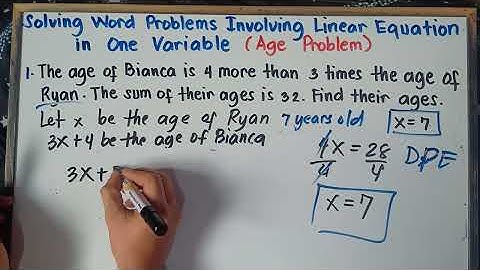 Solving Word Problems Involving Linear Equation
in One Variable (Age Problem)
1. The age of Bianca is 4 more than 3 times the age of
Ryan. The sum of their ages is 32. Find their ages.
Let x be the age of Ryan 7 years old
x = 7
3x+4 be the age of Bianca
4x = 28 DPE
4 4
3x+
x = 7